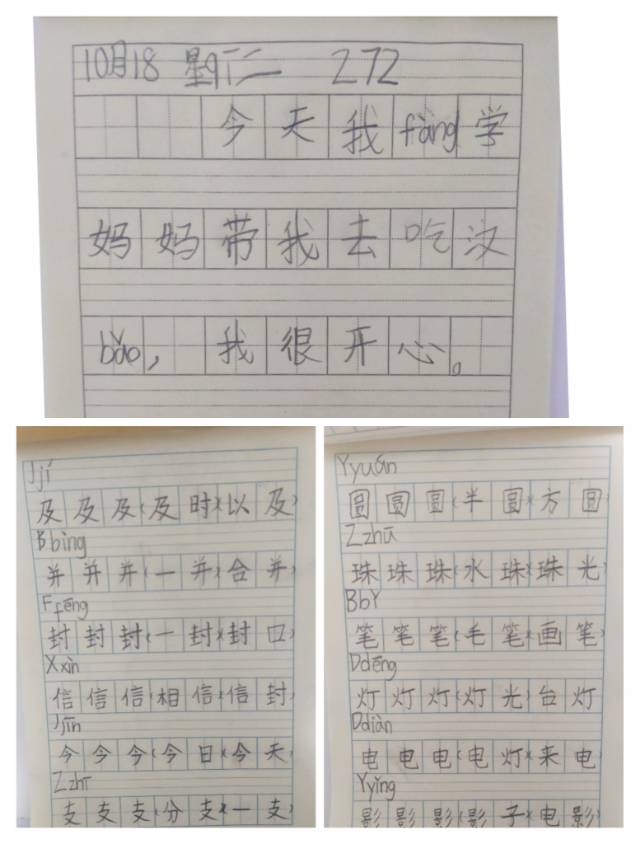 10月18 星期二 272
今天我fàng学
妈妈带我去吃汉
bǎo，我很开心。
Jjí
及及及(及时)(以及)
Bbìng
并并并(一并)(合并)
Ffēng
封封封(一封)(封口)
Xxìn
信信信(相信)(信封)
Jjīn
今今今(今日)(今天)
Zzhī
支支支(分支)(一支)
Yyuán
圆圆圆(半圆)(方圆)
Zzhū
珠珠珠(水珠)(珠光)
BbY
笔笔笔(毛笔)(画笔)
Ddēng
灯灯灯(灯光)(台灯)
Ddiàn
电电电(电灯)(来电)
Yyǐng
影影影(影子)(电影)